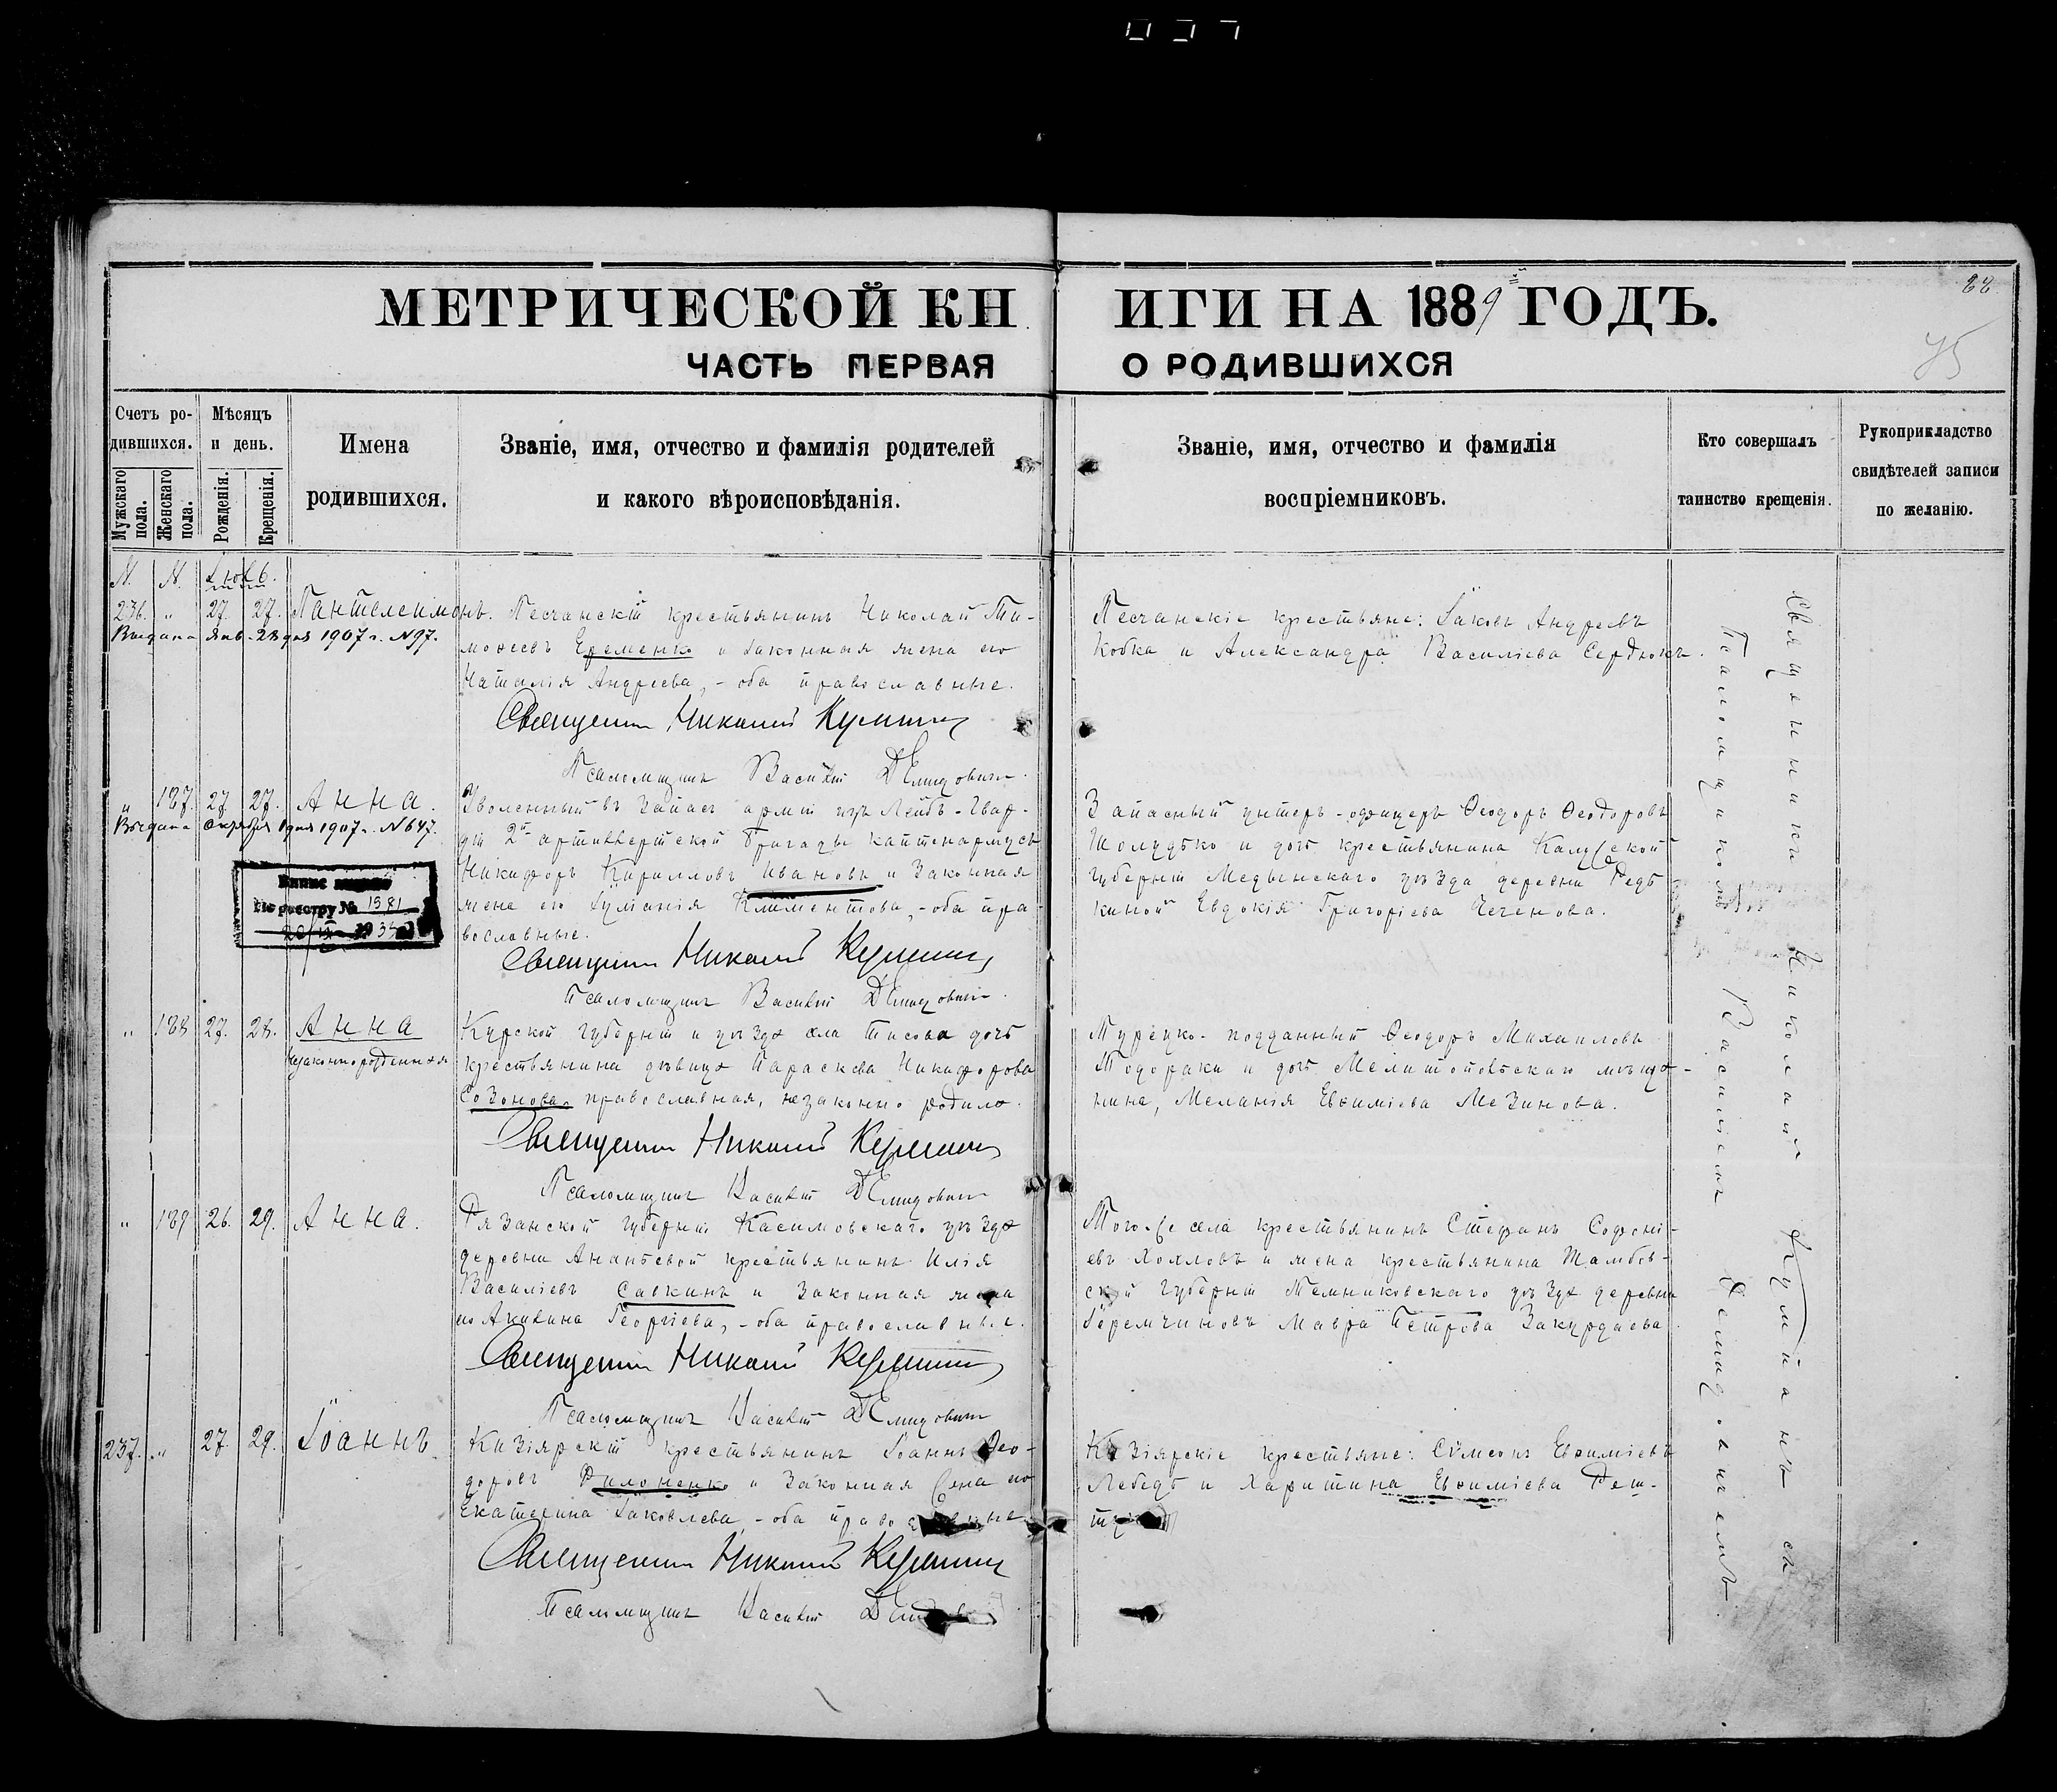 МЕТРИЧЕСКОЙ КНИГИ НА 1889й ГОДЪ.
88
75
ЧАСТЬ ПЕРВАЯ О РОДИВШИХСЯ
Счетъ ро-
дившихся.
Мужскаго пола.
Женскаго пола.
Мѣсяцъ
и день.
Рожденія.
Крещенія.
Имена
родившихся.
Званіе, имя, отчество и фамилія родителей
и какого вѣроисповѣданія.
Званіе, имя, отчество и фамилія
воспріемниковъ.
Кто совершалъ
таинство крещенія.
Рукоприкладство
свидѣтелей записи
по желанію.
N. N. Іюль.
236. " 27. 27. Пантелеимонъ.
Выдана Янв. 28 дня 1907 г. N 97.
Песчанскій крестьянинъ Николай Ти-
моѳеевъ Еременко и законная жена его
Наталія Андреева, - оба православные.
Священникъ Николай
Псаломщикъ Василій Демидовичъ.
Песчанскіе крестьяне: Іаковъ Андреевъ
Кобка и Александра Василіева Сердюкъ.
" 187. 27 27. Анна.
Выдана Октября 1 дня 1907 г. N 647.
по реестру № 1381
Уволенный въ запасъ арміи изъ Лейбъ-Гвар-
діи 2й артиллерійской бригады каптенармусъ
Никифоръ Кирилловъ Ивановъ и законная
жена его Іуліанія Климентова, - оба пра-
вославные.
Священникъ Николай
Псаломщикъ Василій Демидовичъ.
Запасный унтеръ-офицеръ Ѳеодоръ Ѳеодоровъ
Шолудько и дочь крестьянина Калужской
губерніи Медынскаго уѣзда деревни Редь
киной Евдокія Григоріева Чеченова.
" 188 27. 28. Анна
Незаконнорожденная
Курской губерніи и уѣзда села дочь
крестьянина дѣвица Параскева Никифорова
Созонова, православная, незаконно родила.
Священникъ Николай
Псаломщикъ Василій Демидовичъ
Турецко-подданный Ѳеодоръ Михаиловъ
Тодораки и дочь Мелитопольскаго мѣща-
нина, Меланія Евѳиміева Мезинова.
" 189 26. 29. Анна.
Рязанской губерніи Касимовскаго уѣзда
деревни Ананьевой крестьянинъ Илія
Василіевъ Савкинъ и законная жена
его Акилина Георгіева, - оба православные.
Священникъ Николай
Псаломщикъ Василій Демидовичъ
Того-же села крестьянинъ Стефанъ Софоні-
евъ Хохловъ и жена крестьянина Тамбов-
ской губерніи Темниковскаго уѣзда деревни
Мавра Петрова Закурдаева.
237. " 27. 29. Іоаннъ.
Кизіярскій крестьянинъ Іоаннъ Ѳео-
доровъ Филоненко и законная жена его
Екатерина Іаковлева, - оба православные
Священникъ Николай
Псаломщикъ Василій
Кизіярскіе крестьяне: Сѵмеонъ Евѳиміевъ
Лебедь и Харитина Евѳиміева Реш-
Священникъ Николай съ
Псаломщикомъ Василіемъ Демидовичемъ.